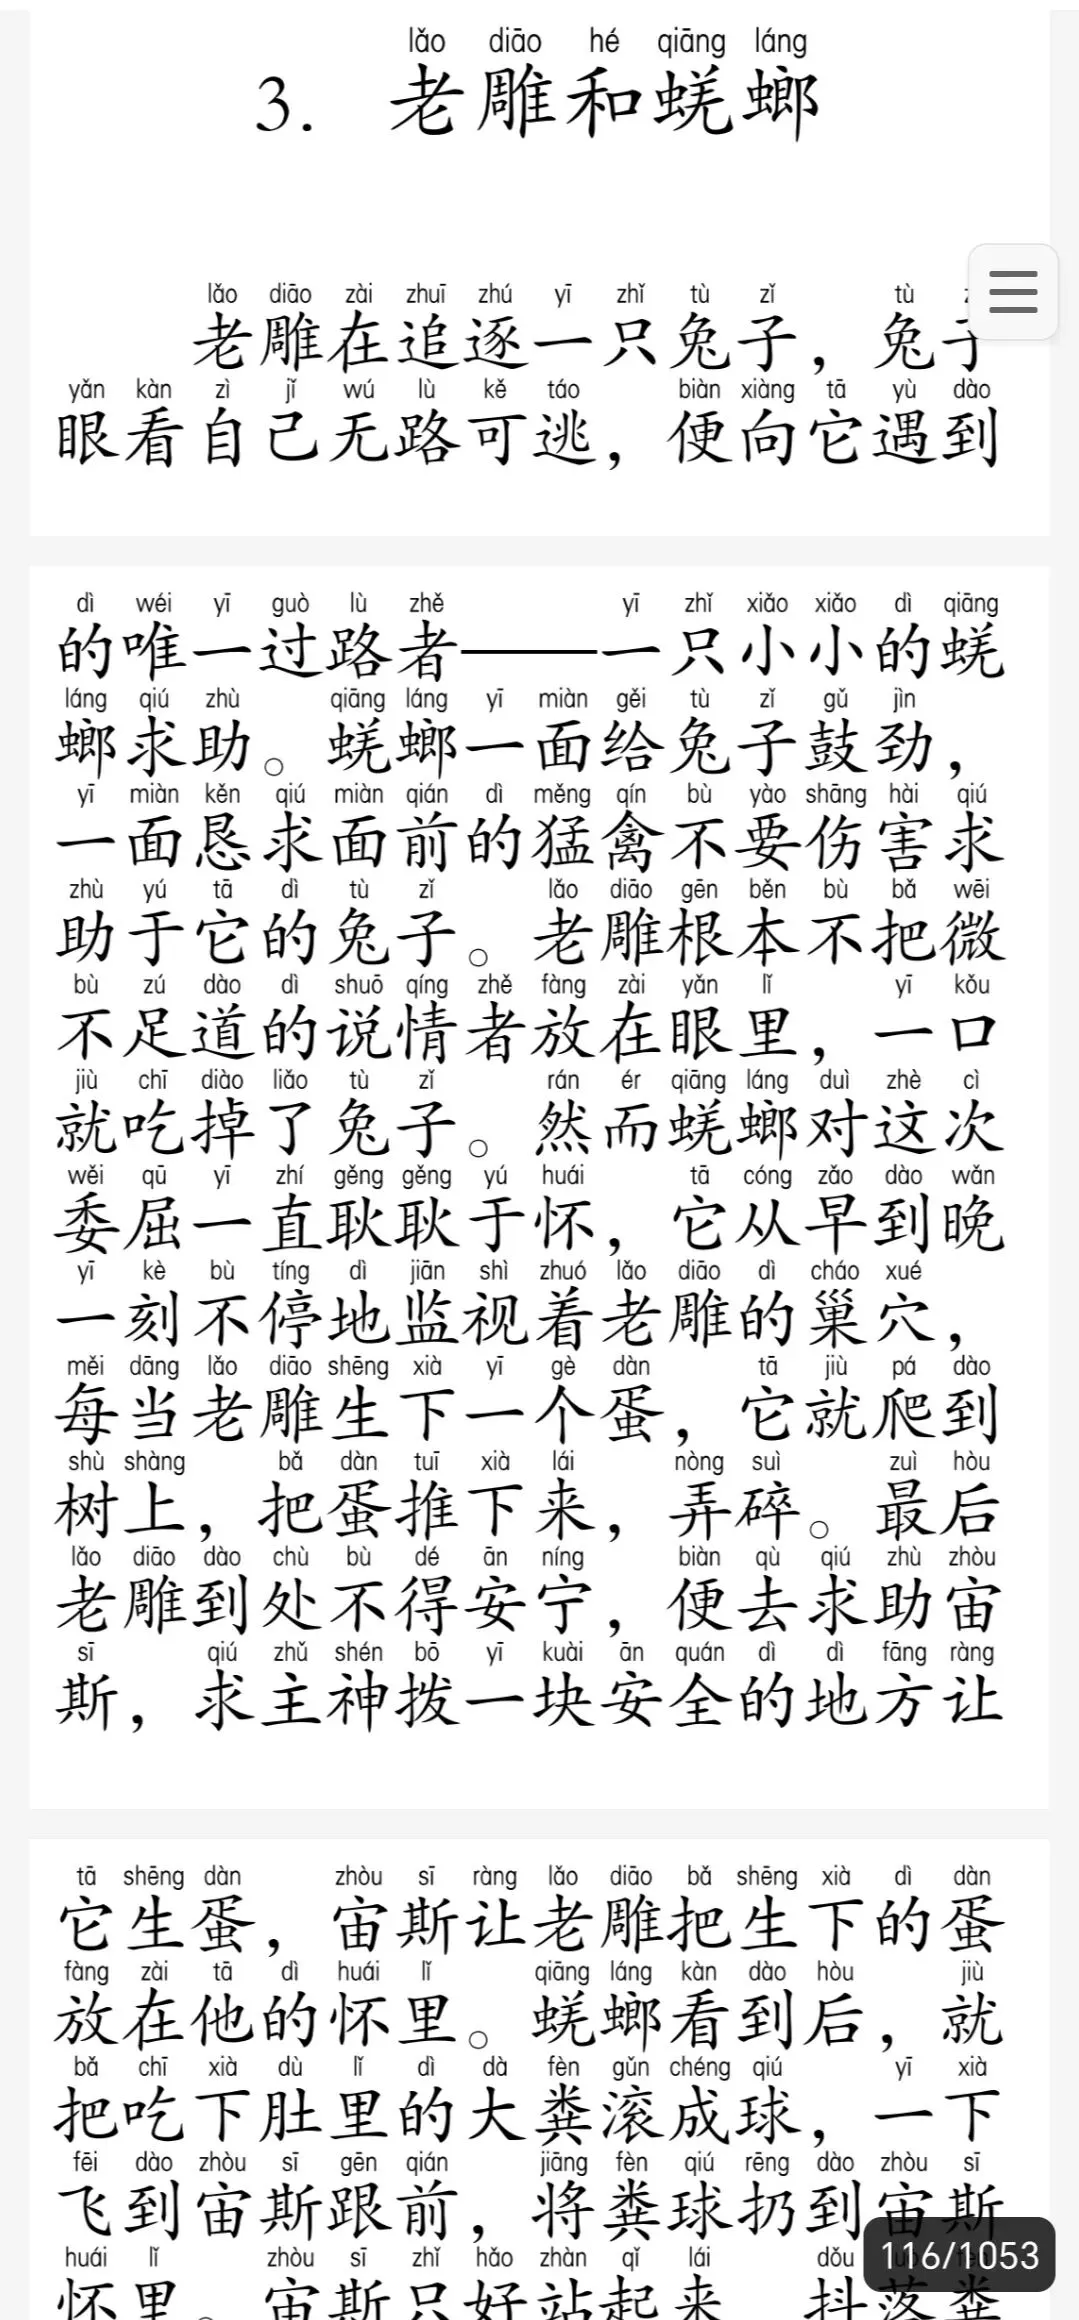 lǎo diāo hé qiāng láng
3. 老雕和蜣螂
lǎo diāo zài zhuī zhú yī zhǐ tù zǐ tù
老雕在追逐一只兔子，兔子
yǎn kàn zì jǐ wú lù kě táo biàn xiàng tā yù dào
眼看自己无路可逃，便向它遇到
dì wéi yī guò lù zhě yī zhǐ xiǎo xiǎo dì qiāng
的唯一过路者——一只小小的蜣
láng qiú zhù qiāng láng yī miàn gěi tù zǐ gǔ jìn
螂求助。蜣螂一面给兔子鼓劲，
yī miàn kěn qiú miàn qián dì měng qín bù yào shāng hài qiú
一面恳求面前的猛禽不要伤害求
zhù yú tā dì tù zǐ lǎo diāo gēn běn bù bǎ wēi
助于它的兔子。老雕根本不把微
bù zú dào dì shuō qíng zhě fàng zài yǎn lǐ yī kǒu
不足道的说情者放在眼里，一口
jiù chī diào liǎo tù zǐ rán ér qiāng láng duì zhè cì
就吃掉了兔子。然而蜣螂对这次
wěi qū yī zhí gěng gěng yú huái tā cóng zǎo dào wǎn
委屈一直耿耿于怀，它从早到晚
yī kè bù tíng dì jiān shì zhuó lǎo diāo dì cháo xué
一刻不停地监视着老雕的巢穴，
měi dāng lǎo diāo shēng xià yī gè dàn tā jiù pá dào
每当老雕生下一个蛋，它就爬到
shù shàng bǎ dàn tuī xià lái nòng suì zuì hòu
树上，把蛋推下来，弄碎。最后
lǎo diāo dào chù bù dé ān níng biàn qù qiú zhù zhòu
老雕到处不得安宁，便去求助宙
sī qiú zhǔ shén bō yī kuài ān quán dì dì fāng ràng
斯，求主神拨一块安全的地方让
tā shēng dàn zhòu sī ràng lǎo diāo bǎ shēng xià dì dàn
它生蛋，宙斯让老雕把生下的蛋
fàng zài tā dì huái lǐ qiāng láng kàn dào hòu jiù
放在他的怀里。蜣螂看到后，就
bǎ chī xià dù lǐ dì dà fèn gǔn chéng qiú yī xià
把吃下肚里的大粪滚成球，一下
fēi dào zhòu sī gēn qián jiāng fèn qiú rēng dào zhòu sī
飞到宙斯跟前，将粪球扔到宙斯
116/1053
huái lǐ zhòu sī zhǐ hǎo zhàn qǐ lái dǒu
怀里。宙斯只好站起来，抖落粪